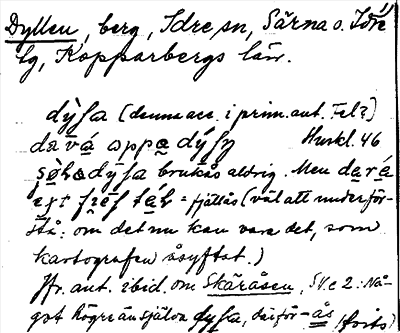 Dyllen, berg, Idre sn, Särna o. Idre
tg, Kopparbergs län.
dỳľa (denna acc. i prim.ant. Fel?)
da vá oppa dýľy Huskl. 46
brukas aldrig. Men da vá
= fjällås (väl att underför-
stå: om det nu kan vara det, som
kartografen åsyftat.)
Jfr. ant. ibid. om Skäråsen, SV. e 2: Nå-
got högre än själva dyľa, därför -ås (forts)